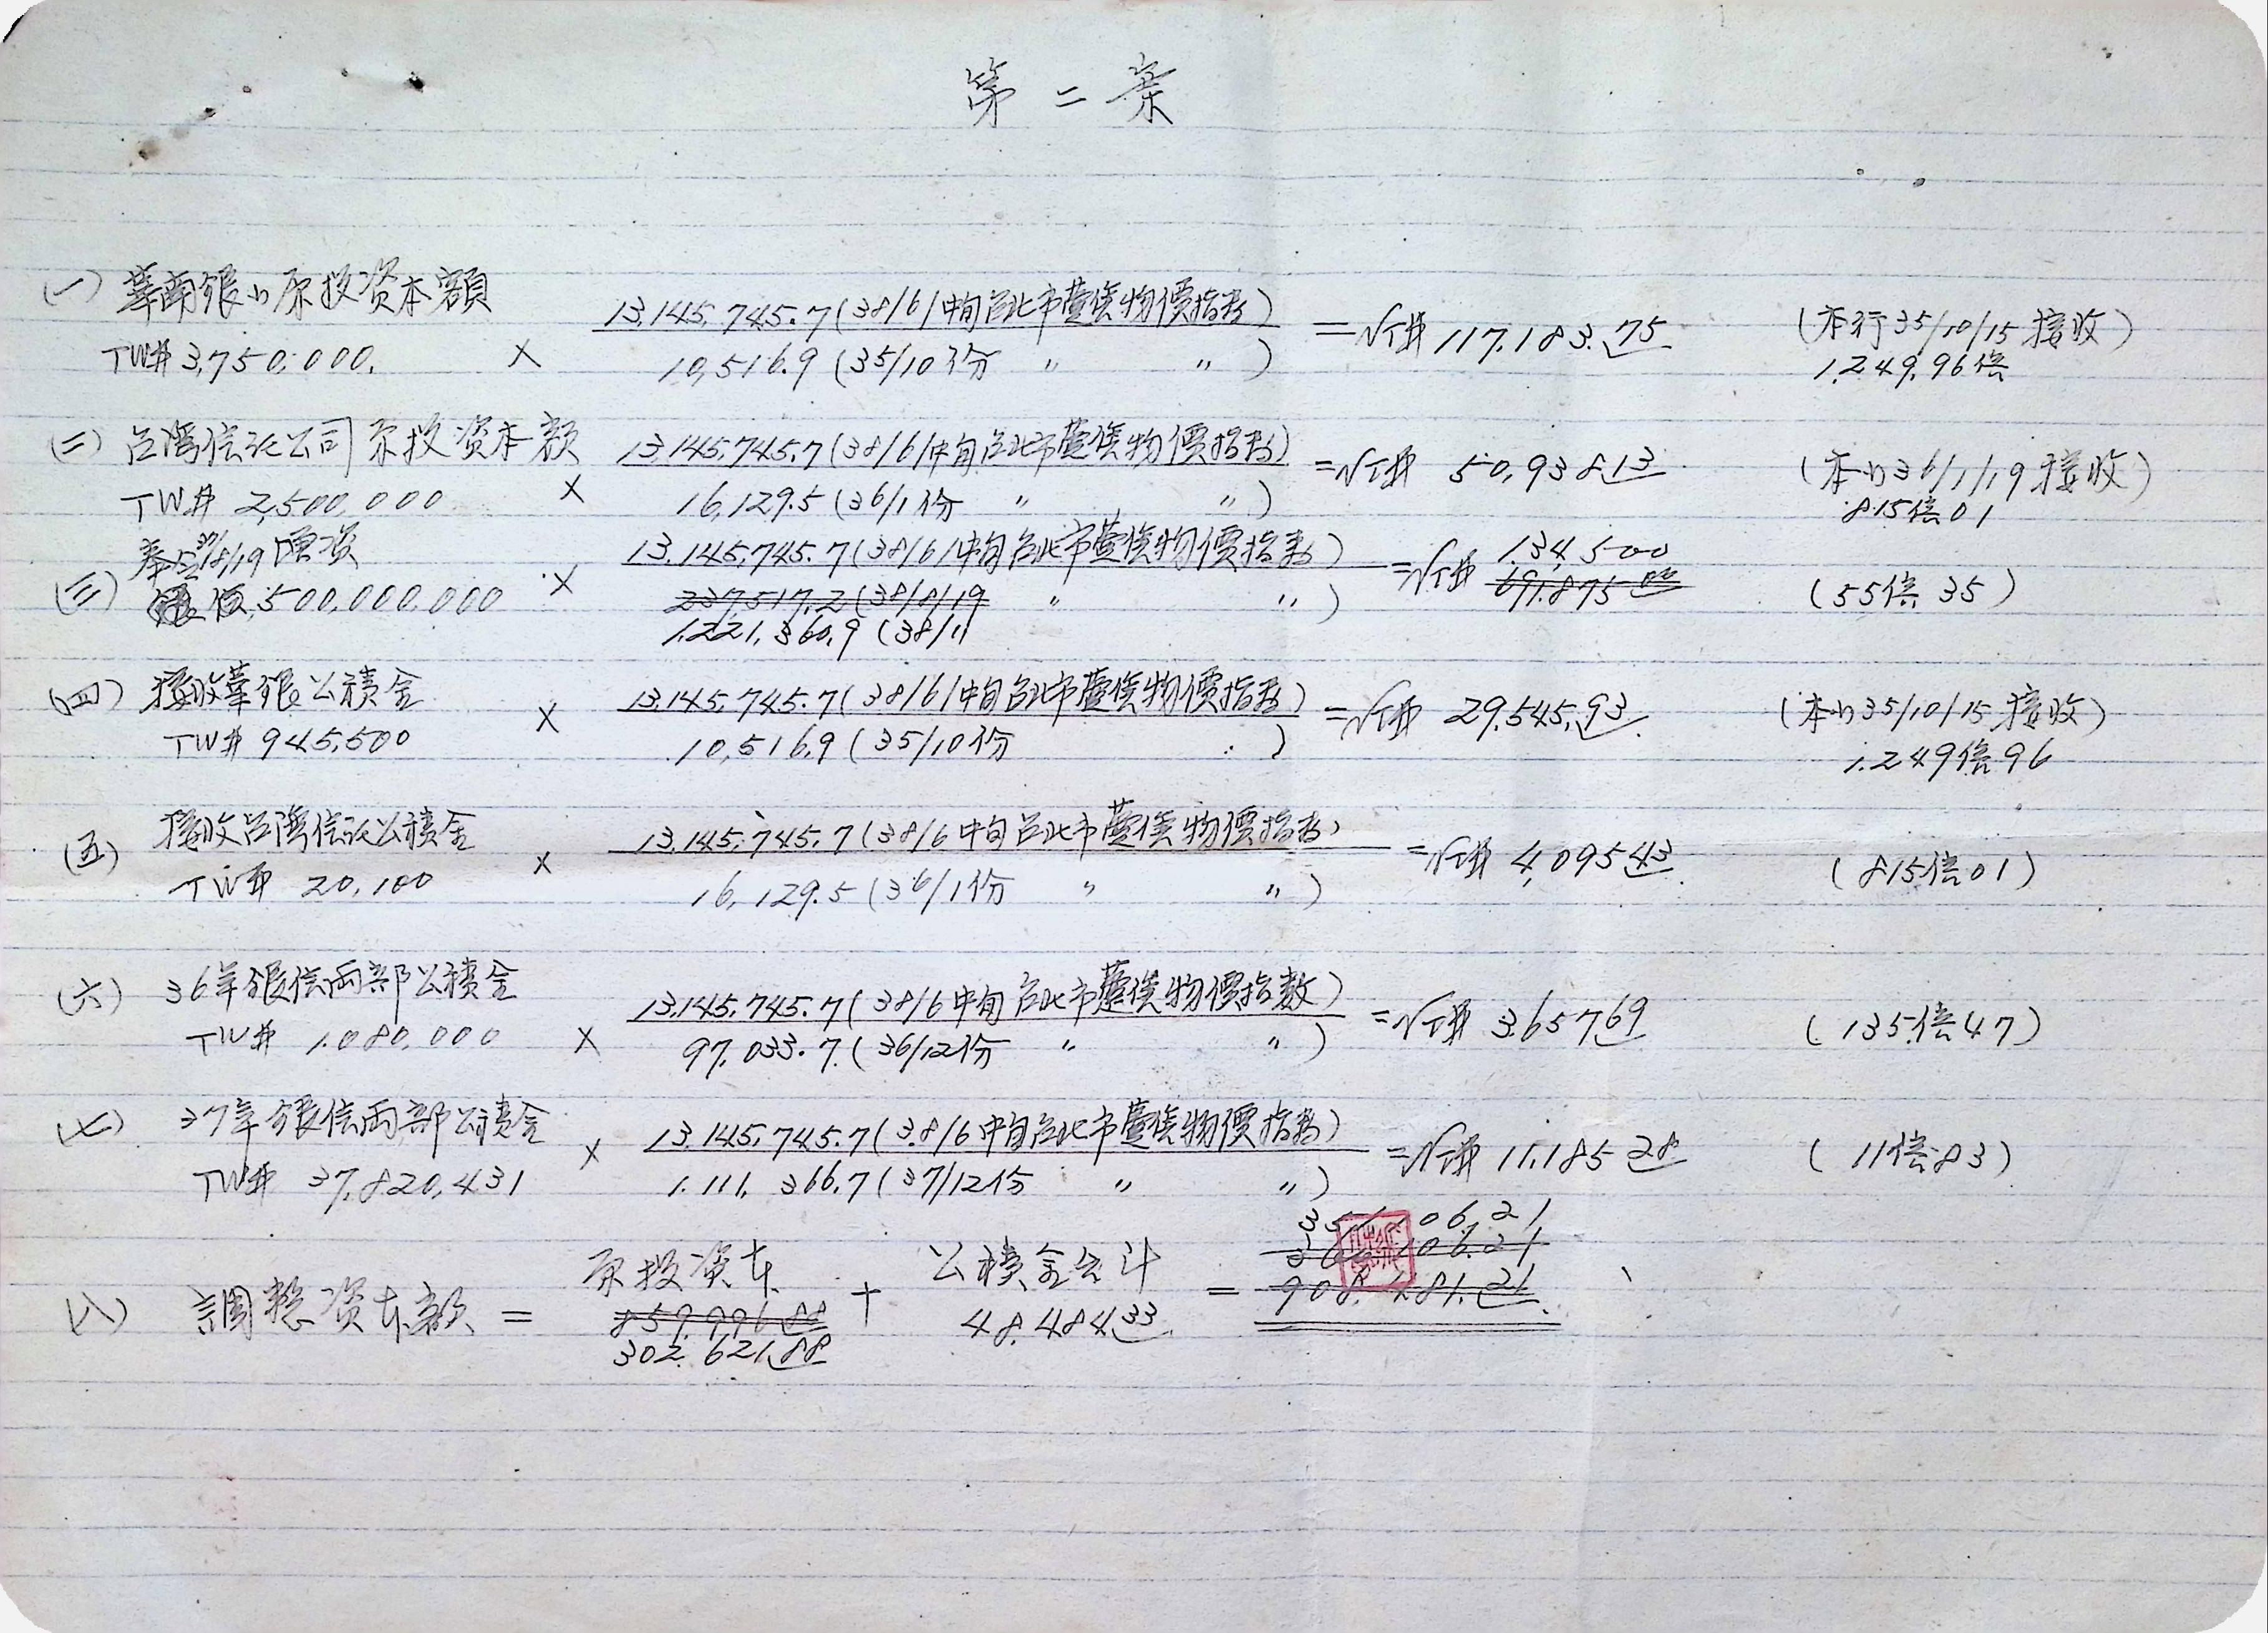 第二案
(一) 華南銀行原投資本額
TW$ 3,750,000. × 13,145,745.7 (38/6/中旬台北市躉售物價指数) = NT$ 117,183.75 (本行35/10/15接收)
10,516.9 (35/10份 〃 〃) 1,249.96倍
(二) 台湾信託公司原投資本額 13,145,745.7 (38/6/中旬台北市躉售物價指数) = NT$ 50,938.13 (本行36/1/19接收)
TW$ 2,500,000 × 16,129.5 (36/1份 〃 〃) 815倍01
奉 /8/19 增資 13,145,745.7 (38/6/中旬台北市躉售物價指数) = NT$ 134,500
(三) 500,000,000 × 237,517.2 (38/8/19 〃 〃) 691.875 00 (55倍35)
1,221,360.9 (38/1)
(四) 接收華銀公積金 × 13,145,745.7 (38/6/中旬台北市躉售物價指数) = NT$ 29,545.93 (本行35/10/15接收)
TW$ 945,500 10,516.9 (35/10份 〃) 1,249倍96
(五) 接收台湾信託公積金 × 13,145,745.7 (38/6中旬台北市躉售物價指数) = NT$ 4,095.43 (815倍01)
TW$ 20,100 16,129.5 (36/1份 〃 〃)
(六) 36年銀信両部公積金 13,145,745.7 (38/6中旬台北市躉售物價指数) = NT$ 3,657.69 (135倍47)
TW$ 1,080,000 × 97,033.7 (36/12份 〃 〃)
(七) 37年銀信両部公積金 × 13,145,745.7 (38/6中旬台北市躉售物價指数) = NT$ 11,185.28 (11倍83)
TW$ 37,820,431 1,111,366.7 (37/12份 〃 〃)
06.21
06.21
(八) 調整資本額 = 原投資本 + 公積金合計 = 481.21
859,996.88 48,484.33
302,621.88